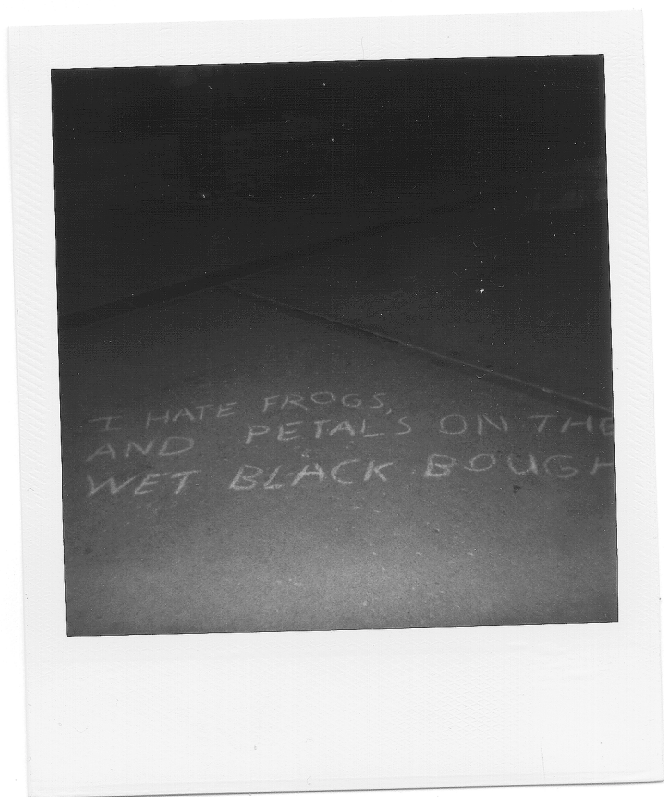 I HATE FROGS,
AND PETALS ON THE
WET BLACK BOUGH